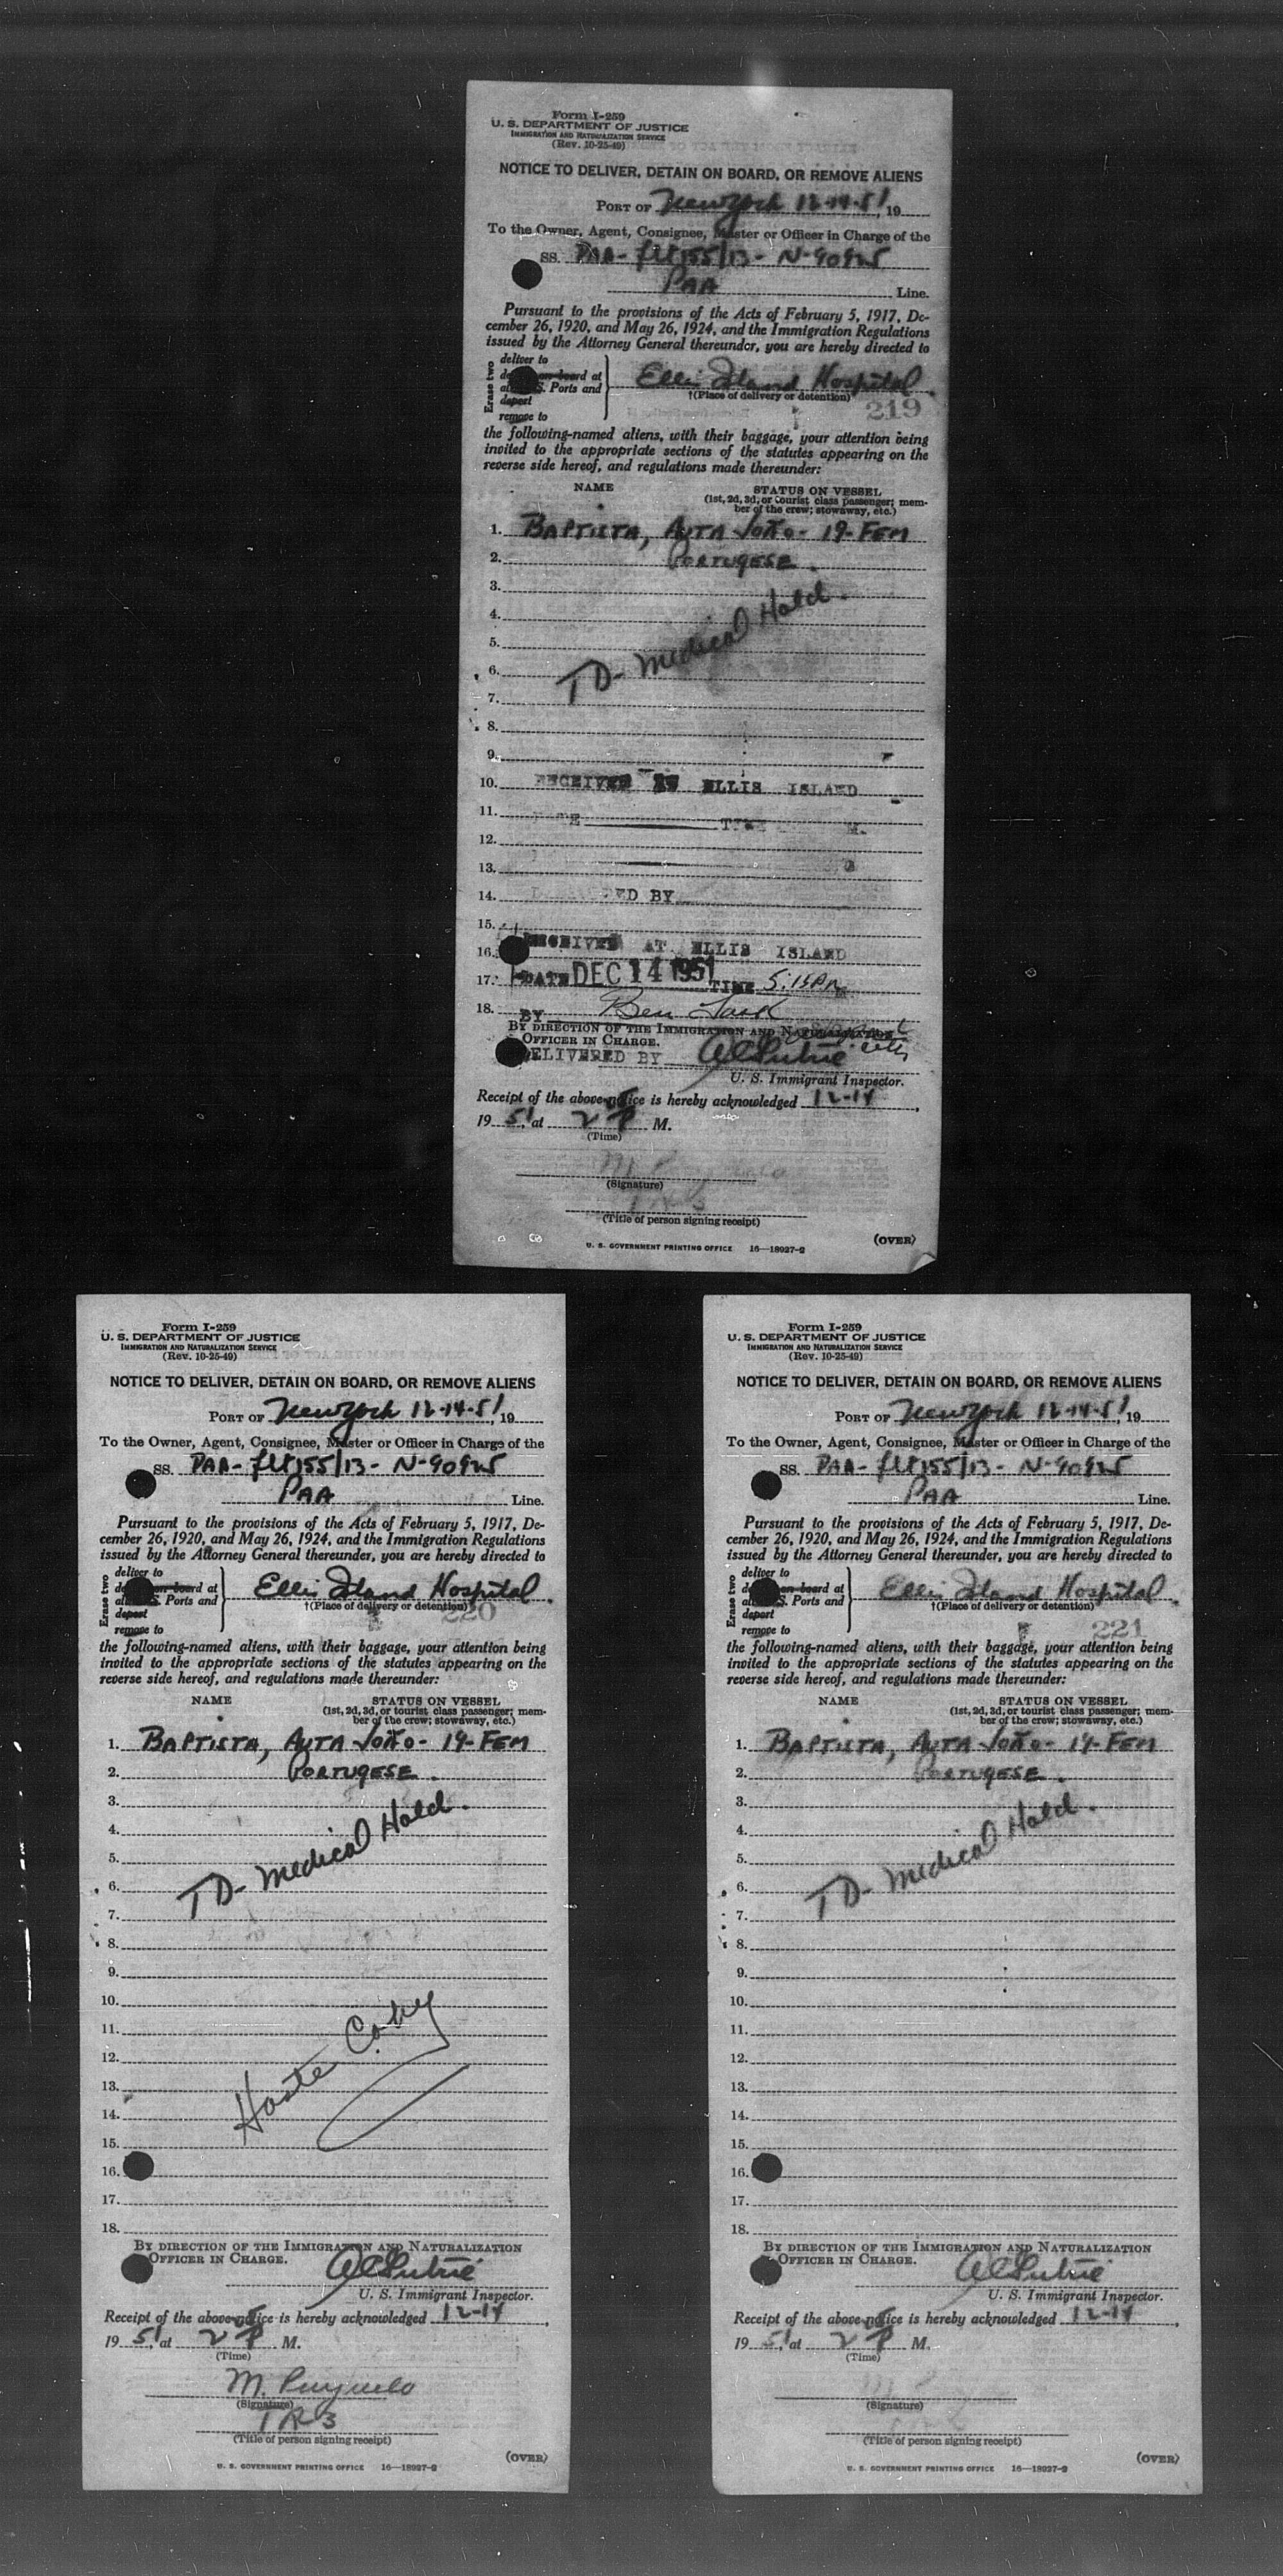 Form I-259
U. S. DEPARTMENT OF JUSTICE
IMMIGRATION AND NATURALIZATION SERVICE
(Rev. 10-25-49)
NOTICE TO DELIVER, DETAIN ON BOARD, OR REMOVE ALIENS
PORT OF New York 12-14-51, 19
To the Owner, Agent, Consignee, Master or Officer in Charge of the
SS. PAA - flt 155/13 - N-90925
PAA Line.
Pursuant to the provisions of the Acts of February 5, 1917, De-
cember 26, 1920, and May 26, 1924, and the Immigration Regulations
issued by the Attorney General thereunder, you are hereby directed to
Erase two
deliver to
on board at
S. Ports and
deport
remove to
Ellis Island Hospital.
†(Place of delivery or detention)
219
the following-named aliens, with their baggage, your attention being
invited to the appropriate sections of the statutes appearing on the
reverse side hereof, and regulations made thereunder:
NAME STATUS ON VESSEL
(1st, 2d, 3d, or tourist class passenger; mem-
ber of the crew; stowaway, etc.)
1. BAPTISTA, AUTA JOÃO - 19 - FEM
2. PORTUGESE.
3.
4.
5.
TD - Medical Hold.
6.
7.
8.
9.
10. RECEIVED AT ELLIS ISLAND
11. TIME M.
12.
13.
14. ED BY
15.
16. RECEIVED AT ELLIS ISLAND
17. DATE DEC 14 1951 TIME 5:15 PM
18. BY Ben
BY DIRECTION OF THE IMMIGRATION AND NATURALIZATION
OFFICER IN CHARGE.
DELIVERED BY
U. S. Immigrant Inspector.
Receipt of the above notice is hereby acknowledged 12-14,
19 51, at 2 P M.
(Time)
(Signature)
(Title of person signing receipt)
(OVER)
U. S. GOVERNMENT PRINTING OFFICE 16—18927-2
Form I-259
U. S. DEPARTMENT OF JUSTICE
IMMIGRATION AND NATURALIZATION SERVICE
(Rev. 10-25-49)
NOTICE TO DELIVER, DETAIN ON BOARD, OR REMOVE ALIENS
PORT OF New York 12-14-51, 19
To the Owner, Agent, Consignee, Master or Officer in Charge of the
SS. PAA - flt 155/13 - N-90925
PAA Line.
Pursuant to the provisions of the Acts of February 5, 1917, De-
cember 26, 1920, and May 26, 1924, and the Immigration Regulations
issued by the Attorney General thereunder, you are hereby directed to
Erase two
deliver to
on board at
S. Ports and
deport
remove to
Ellis Island Hospital.
†(Place of delivery or detention)
220
the following-named aliens, with their baggage, your attention being
invited to the appropriate sections of the statutes appearing on the
reverse side hereof, and regulations made thereunder:
NAME STATUS ON VESSEL
(1st, 2d, 3d, or tourist class passenger; mem-
ber of the crew; stowaway, etc.)
1. BAPTISTA, AUTA JOÃO - 19 - FEM
2. PORTUGESE.
3.
4.
5.
TD - Medical Hold.
6.
7.
8.
9.
10.
11.
12.
13.
14.
15.
16.
17.
18.
BY DIRECTION OF THE IMMIGRATION AND NATURALIZATION
OFFICER IN CHARGE.
U. S. Immigrant Inspector.
Receipt of the above notice is hereby acknowledged 12-14,
19 51, at 2 P M.
(Time)
M.
(Signature)
TR 3
(Title of person signing receipt)
(OVER)
U. S. GOVERNMENT PRINTING OFFICE 16—18927-2
Form I-259
U. S. DEPARTMENT OF JUSTICE
IMMIGRATION AND NATURALIZATION SERVICE
(Rev. 10-25-49)
NOTICE TO DELIVER, DETAIN ON BOARD, OR REMOVE ALIENS
PORT OF New York 12-14-51, 19
To the Owner, Agent, Consignee, Master or Officer in Charge of the
SS. PAA - flt 155/13 - N-90925
PAA Line.
Pursuant to the provisions of the Acts of February 5, 1917, De-
cember 26, 1920, and May 26, 1924, and the Immigration Regulations
issued by the Attorney General thereunder, you are hereby directed to
Erase two
deliver to
on board at
S. Ports and
deport
remove to
Ellis Island Hospital.
†(Place of delivery or detention)
221
the following-named aliens, with their baggage, your attention being
invited to the appropriate sections of the statutes appearing on the
reverse side hereof, and regulations made thereunder:
NAME STATUS ON VESSEL
(1st, 2d, 3d, or tourist class passenger; mem-
ber of the crew; stowaway, etc.)
1. BAPTISTA, AUTA JOÃO - 19 - FEM
2. PORTUGESE.
3.
4.
5.
TD - Medical Hold.
6.
7.
8.
9.
10.
11.
12.
13.
14.
15.
16.
17.
18.
BY DIRECTION OF THE IMMIGRATION AND NATURALIZATION
OFFICER IN CHARGE.
U. S. Immigrant Inspector.
Receipt of the above notice is hereby acknowledged 12-14,
19 51, at 2 P M.
(Time)
(Signature)
(Title of person signing receipt)
(OVER)
U. S. GOVERNMENT PRINTING OFFICE 16—18927-2